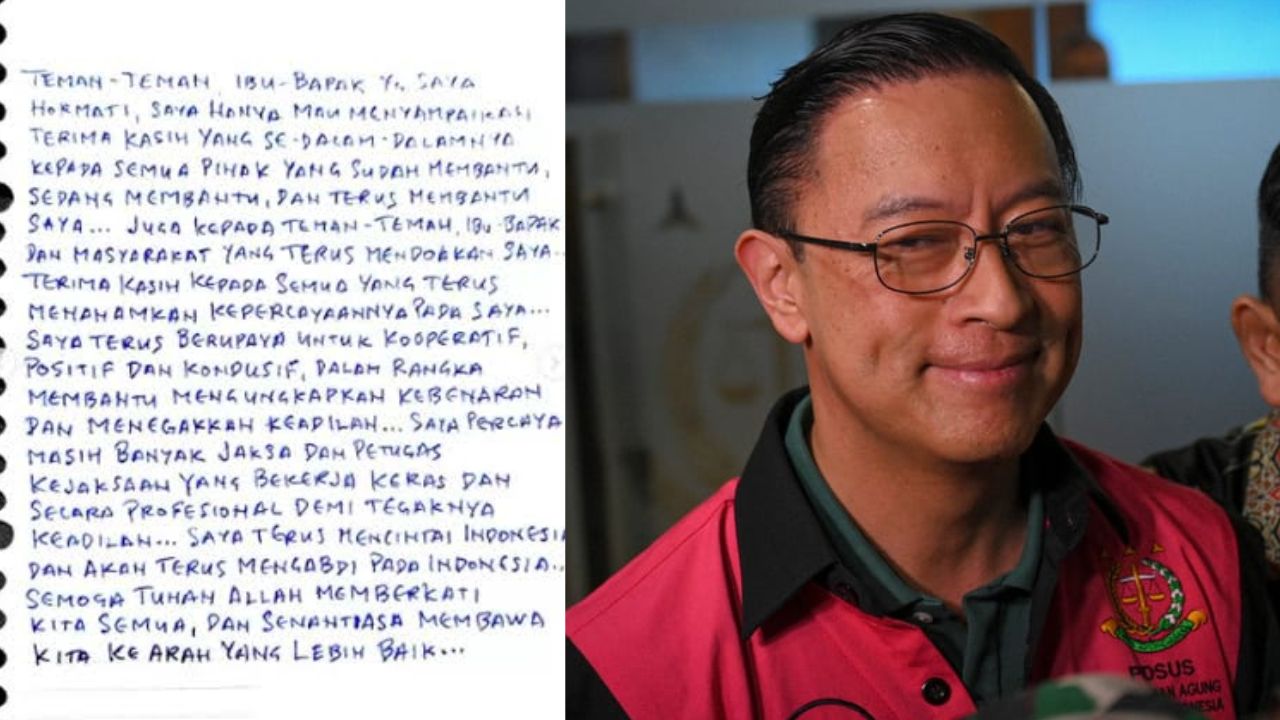 TEMAN-TEMAN, IBU-BAPAK YG SAYA
HORMATI, SAYA HANYA MAU MENYAMPAIKAN
TERIMA KASIH YANG SE-DALAM-DALAMNYA
KEPADA SEMUA PIHAK YANG SUDAH MEMBANTU,
SEDANG MEMBANTU, DAN TERUS MEMBANTU
SAYA... JUGA KEPADA TEMAN-TEMAN, IBU-BAPAK
DAN MASYARAKAT YANG TERUS MENDOAKAN SAYA..
TERIMA KASIH KEPADA SEMUA YANG TERUS
MENANAMKAN KEPERCAYAANNYA PADA SAYA...
SAYA TERUS BERUPAYA UNTUK KOOPERATIF,
POSITIF DAN KONDUSIF, DALAM RANGKA
MEMBANTU MENGUNGKAPKAN KEBENARAN
DAN MENEGAKKAN KEADILAN... SAYA PERCAYA
MASIH BANYAK JAKSA DAN PETUGAS
KEJAKSAAN YANG BEKERJA KERAS DAN
SECARA PROFESIONAL DEMI TEGAKNYA
KEADILAN... SAYA TERUS MENCINTAI INDONESIA
DAN AKAN TERUS MENGABDI PADA INDONESIA..
SEMOGA TUHAN ALLAH MEMBERKATI
KITA SEMUA, DAN SENANTIASA MEMBAWA
KITA KE ARAH YANG LEBIH BAIK...
PDSUS
AGUNG